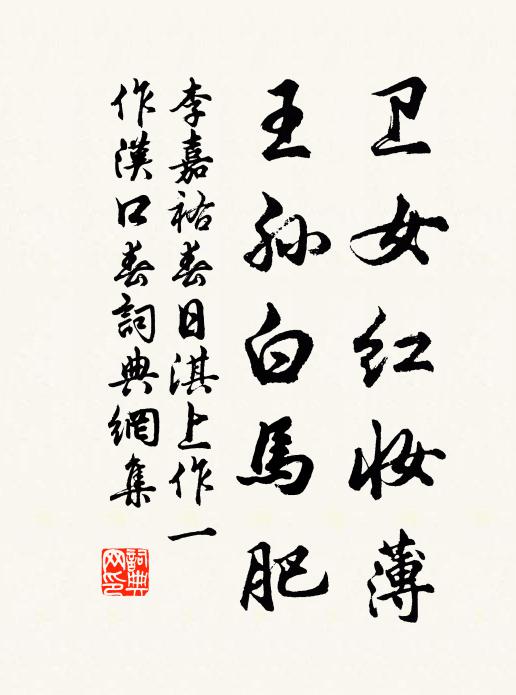 卫女红妆薄
王孙白馬肥
李嘉祐春日淇上作一
作漢口春詞典網集
詞典網印